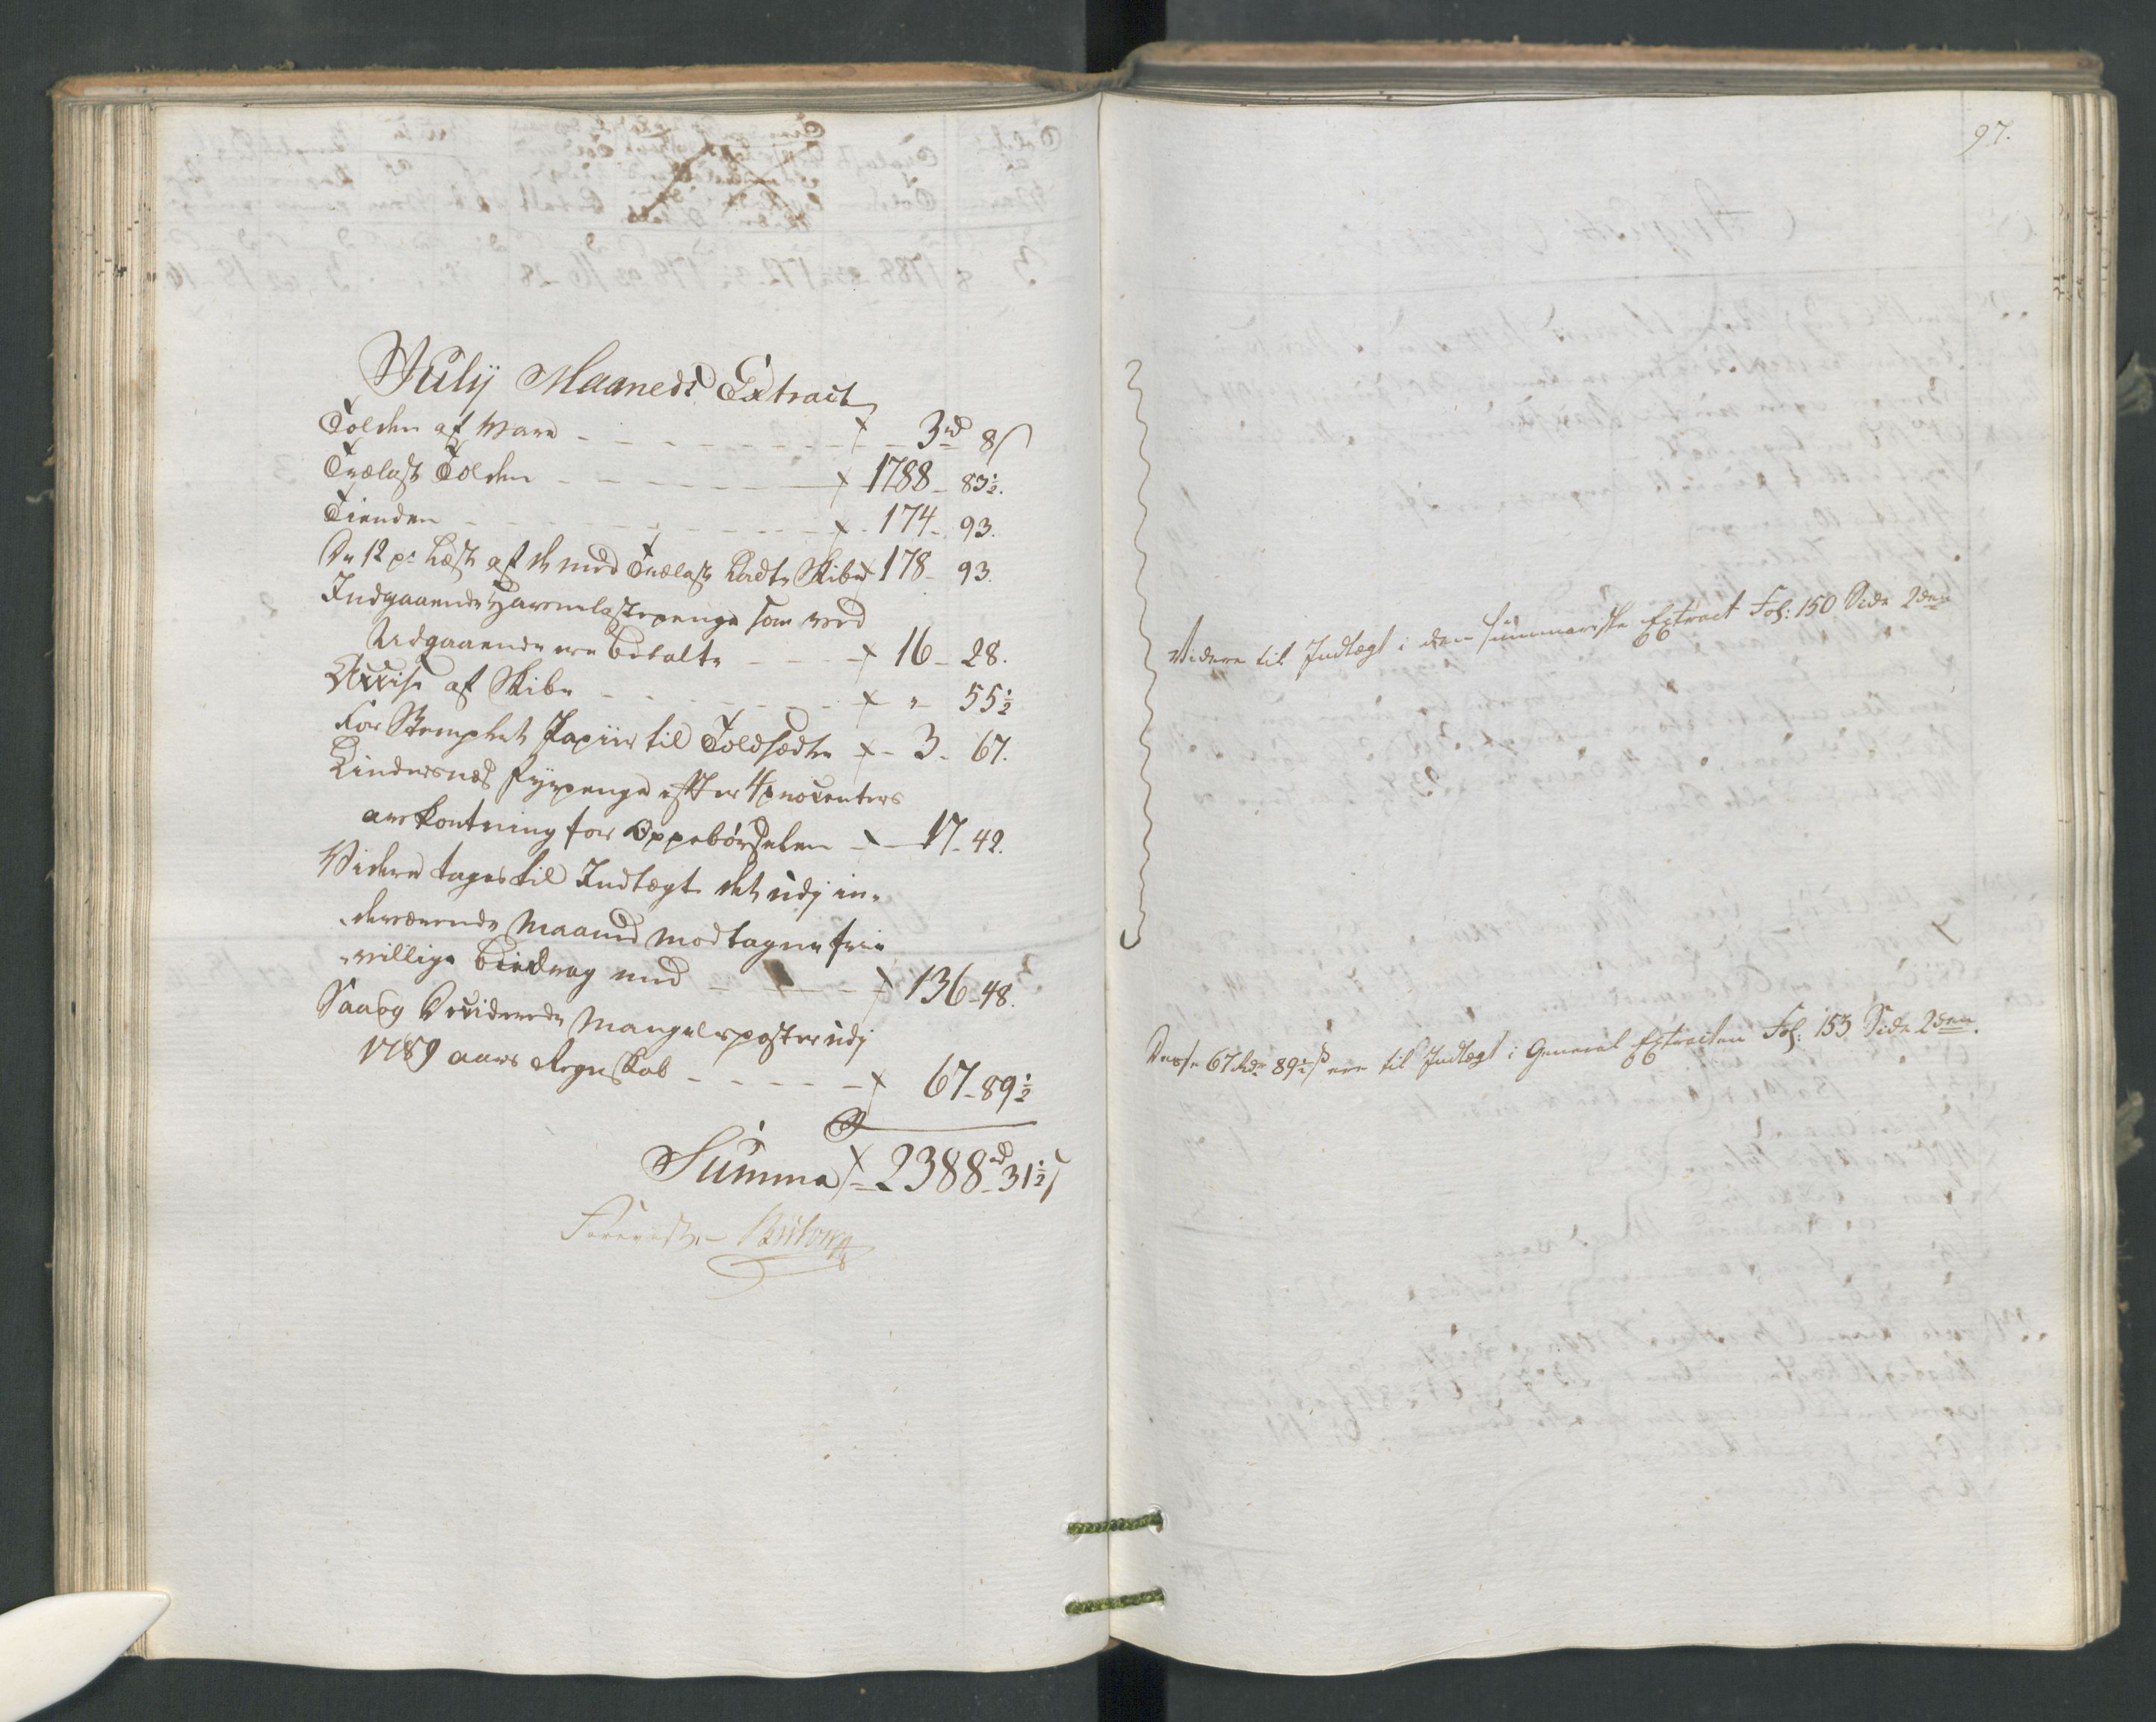 Julij Maaneds Extract
Tolden af Vare - - - - - - 3 rd 8 s
Trælast Tolden - - - - - 1788 - 83½.
Tienden - - - - - 174 - 93.
De 12 pr Læst af de med Trælast Ladte Skibe 178 - 93.
Indgaaende Havnelastepenge som ved
Udgaaende ere betalte - - - 16 - 28.
Accise af Skibe - - - - - " - 55½
For Stemplet Papiir til Toldsedle - 3 - 67.
Lindersnæs Fyrpenge efter 4 procenters
avkortning for Oppebørselen - 17 - 42.
Videre tages til Indtægt det udj in-
-deværende Maaned modtagne frie
-villige Biedrag med - - - 136 - 48.
Saa og Deciderede Mangelsposter udj
1789 aars Regnskab - - - - - 67 - 89½
Summa - 2388 rd - 31½ s
97.
Videre til Indtægt i den summariske Extract Fol: 150 Side 2den
Disse 67 Rdr 89½ s ere til Indtægt i General Extracten Fol: 153 Side 2den.